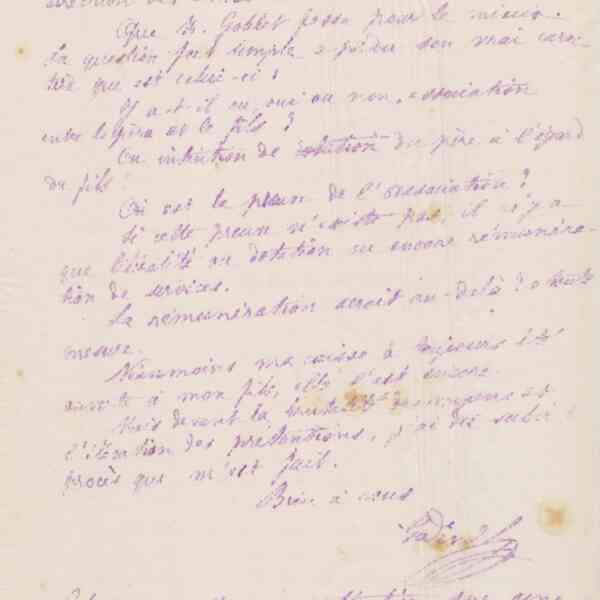 Que M. Goblet pose pour le mieux
la question fort simple a perdu son vrai carac-
tère que est celui-ci :
Y a-t-il eu, oui ou non, association
entre le père et le fils ?
Ou intention de du père à l'égard
du fils
Où est la preuve de l'association ?
Si cette preuve n'existe pas, il n'y a
que libéralité ou dotation ou encore rémunéra-
tion de services.
La rémunération serait au-delà ? toute
mesure.
Néanmoins ma caisse à toujours été
ouverte à mon fils, elle l'est encore.
Mais devant la brutalité des moyens et
des prétentions, j'ai dû subir
procès que m'est fait.
Bien à vous
Godin